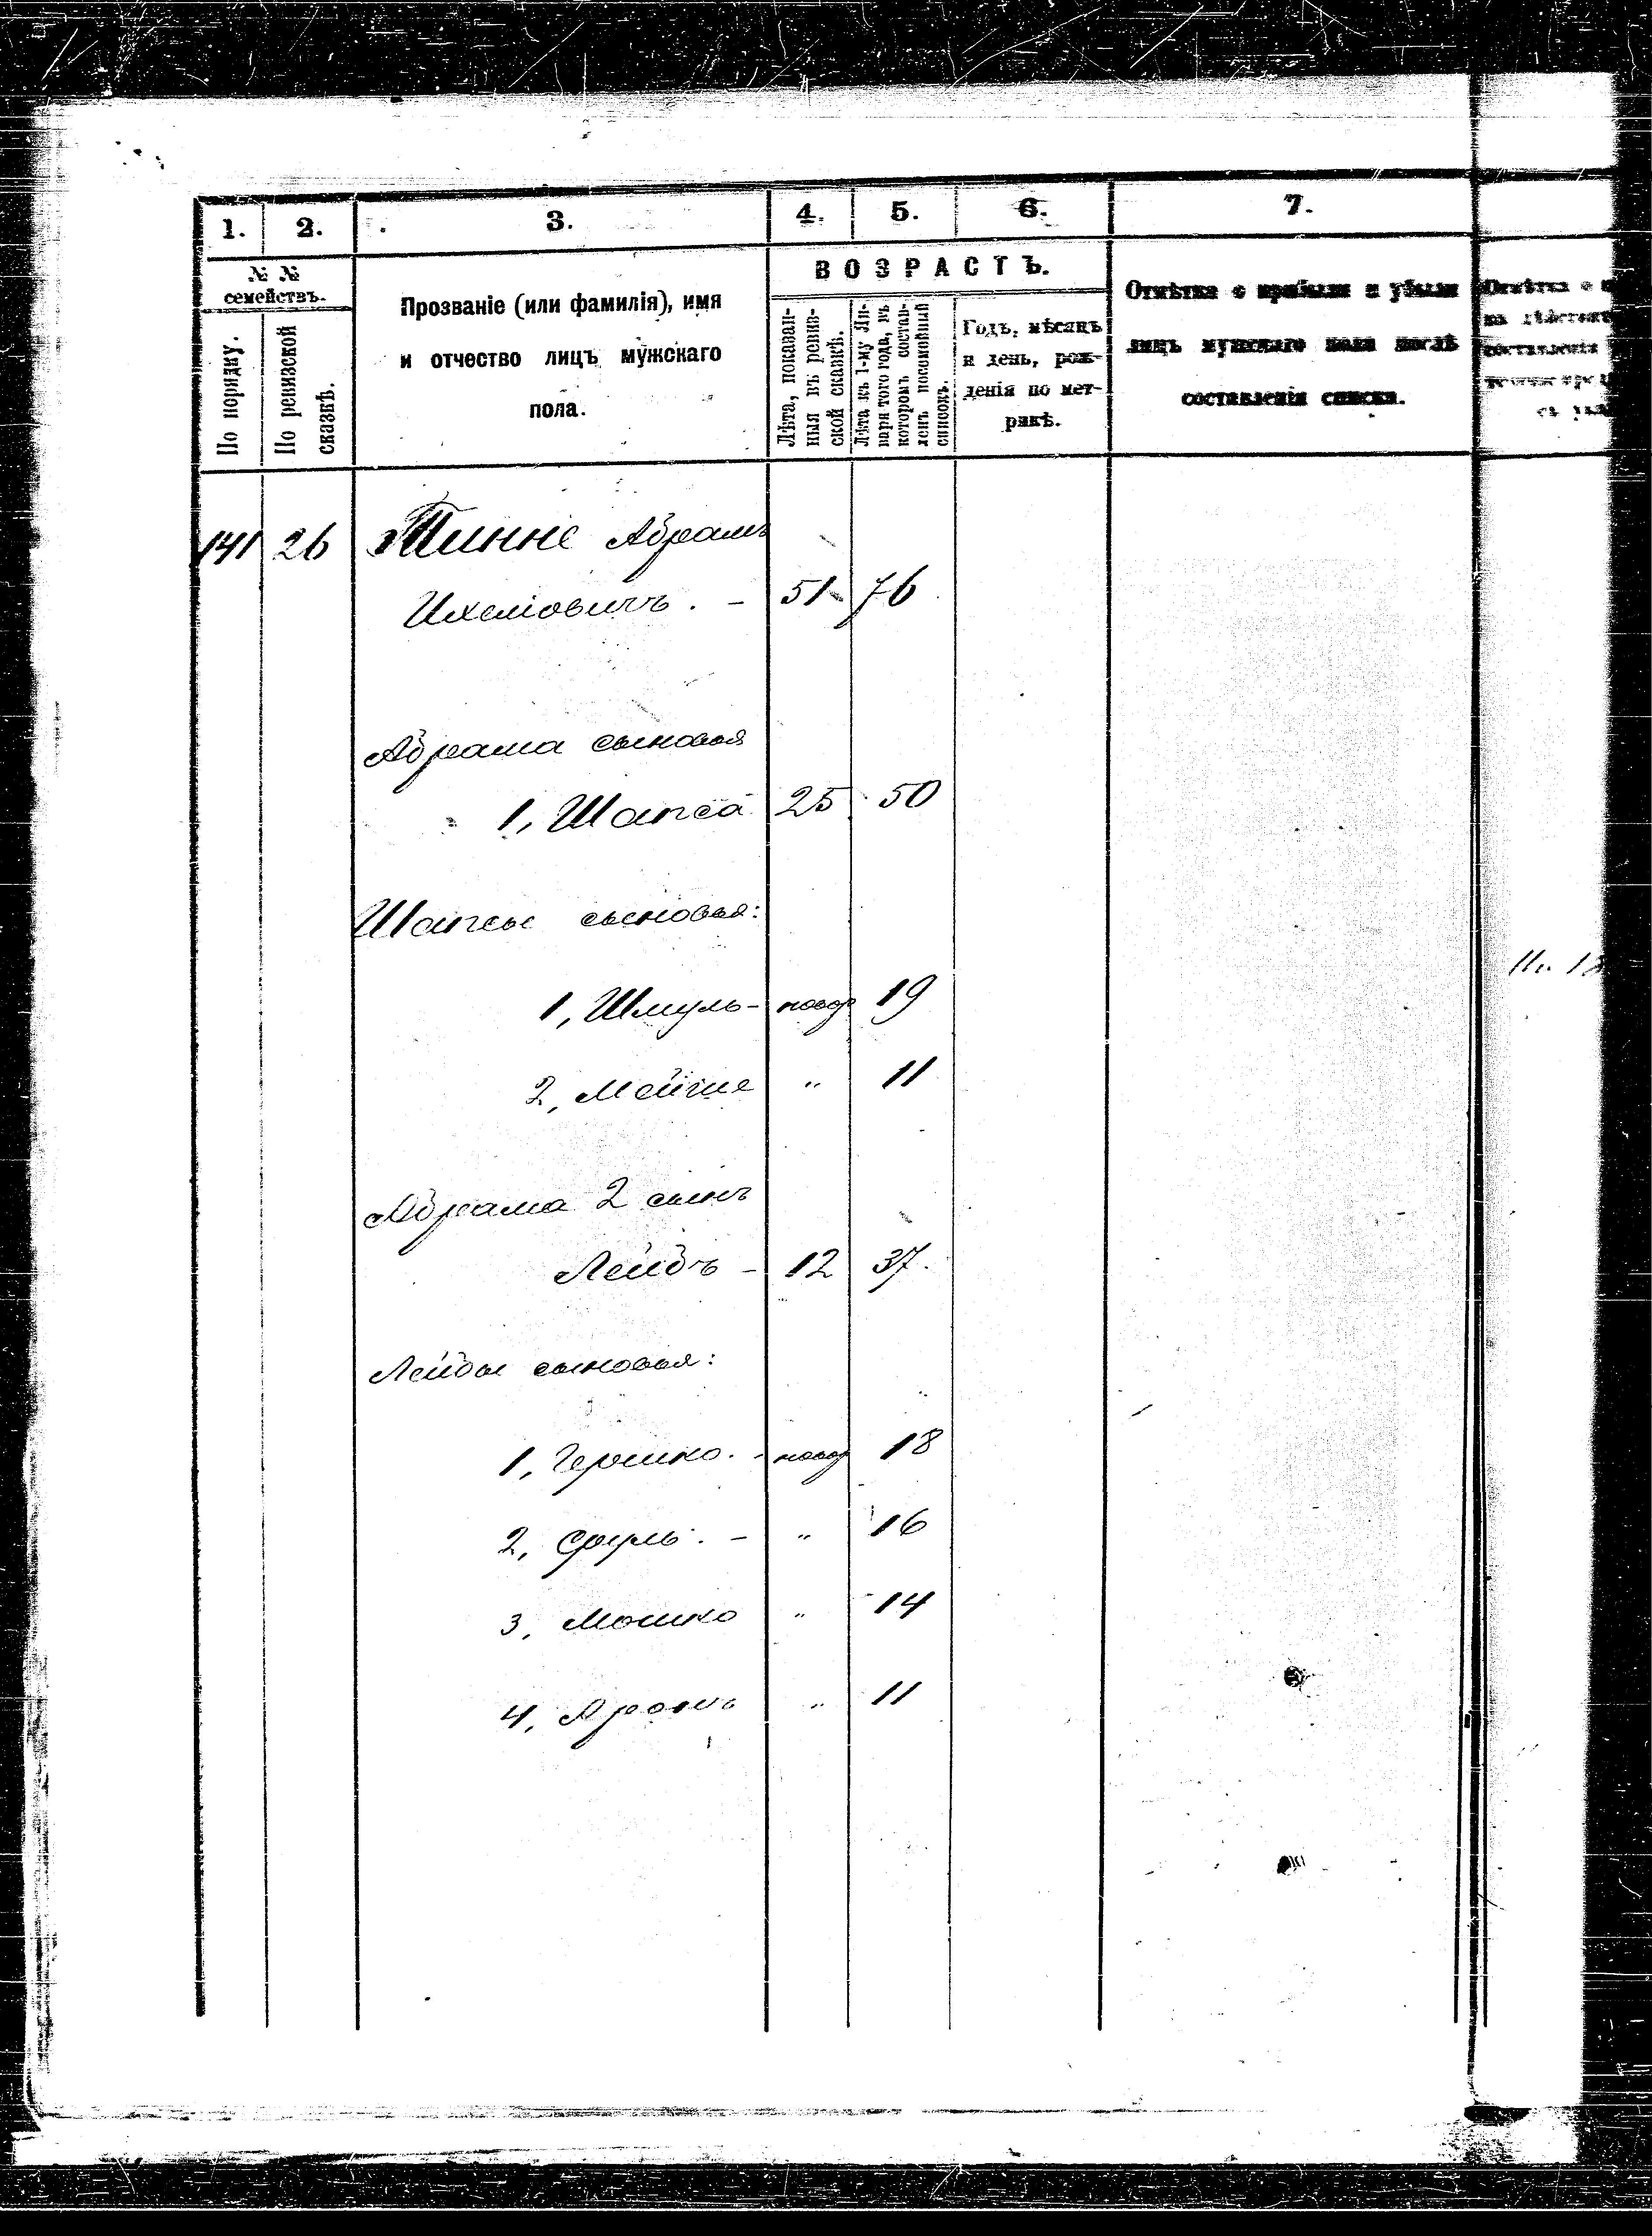 1. 2. 3. 4. 5. 6. 7.
№ №
семействъ.
По порядку.
По ревизской
сказкѣ.
Прозваніе (или фамилія), имя
и отчество лицъ мужскаго
пола.
ВОЗРАСТЪ.
Лѣта, показан-
ныя въ ревиз-
ской сказкѣ.
Лѣта къ 1-му Ян-
варя того года, въ
которомъ состав-
ленъ посемейный
списокъ.
Годъ, мѣсяцъ
и день, рож-
денія по мет-
рикѣ.
Отмѣтка о прибыли и убыли
лицъ мужскаго пола послѣ
составленія списка.
Отмѣтка о
составленія
141 26 Абрамъ
51 76
Абрама сыновья
1, Шапса 25 50
Шапсы сыновья:
1, Шмуль - новор 19
2, " 11
Абрама 2 сынъ
Лейбъ - 12 37.
Лейбы сыновья:
1, Гершко. - новор 18
2, Сруль. - " 16
3, Мошко " 14
4, Аронъ " 11